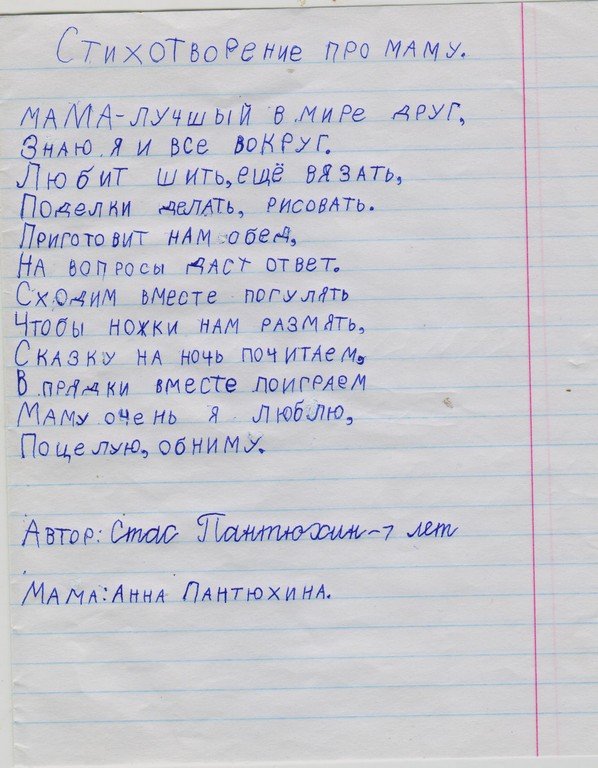 Стихотворение про маму.
Мама-лучший в мире друг,
Знаю я и все вокруг.
Любит шить, ещё вязать,
Поделки делать, рисовать.
Приготовит нам обед,
На вопросы даст ответ.
Сходим вместе погулять
Чтобы ножки нам размять,
Сказку на ночь почитаем,
В прядки вместе поиграем
Маму очень я люблю,
Поцелую, обниму.
Автор: Стас Пантюхин-7 лет
Мама: Анна Пантюхина.